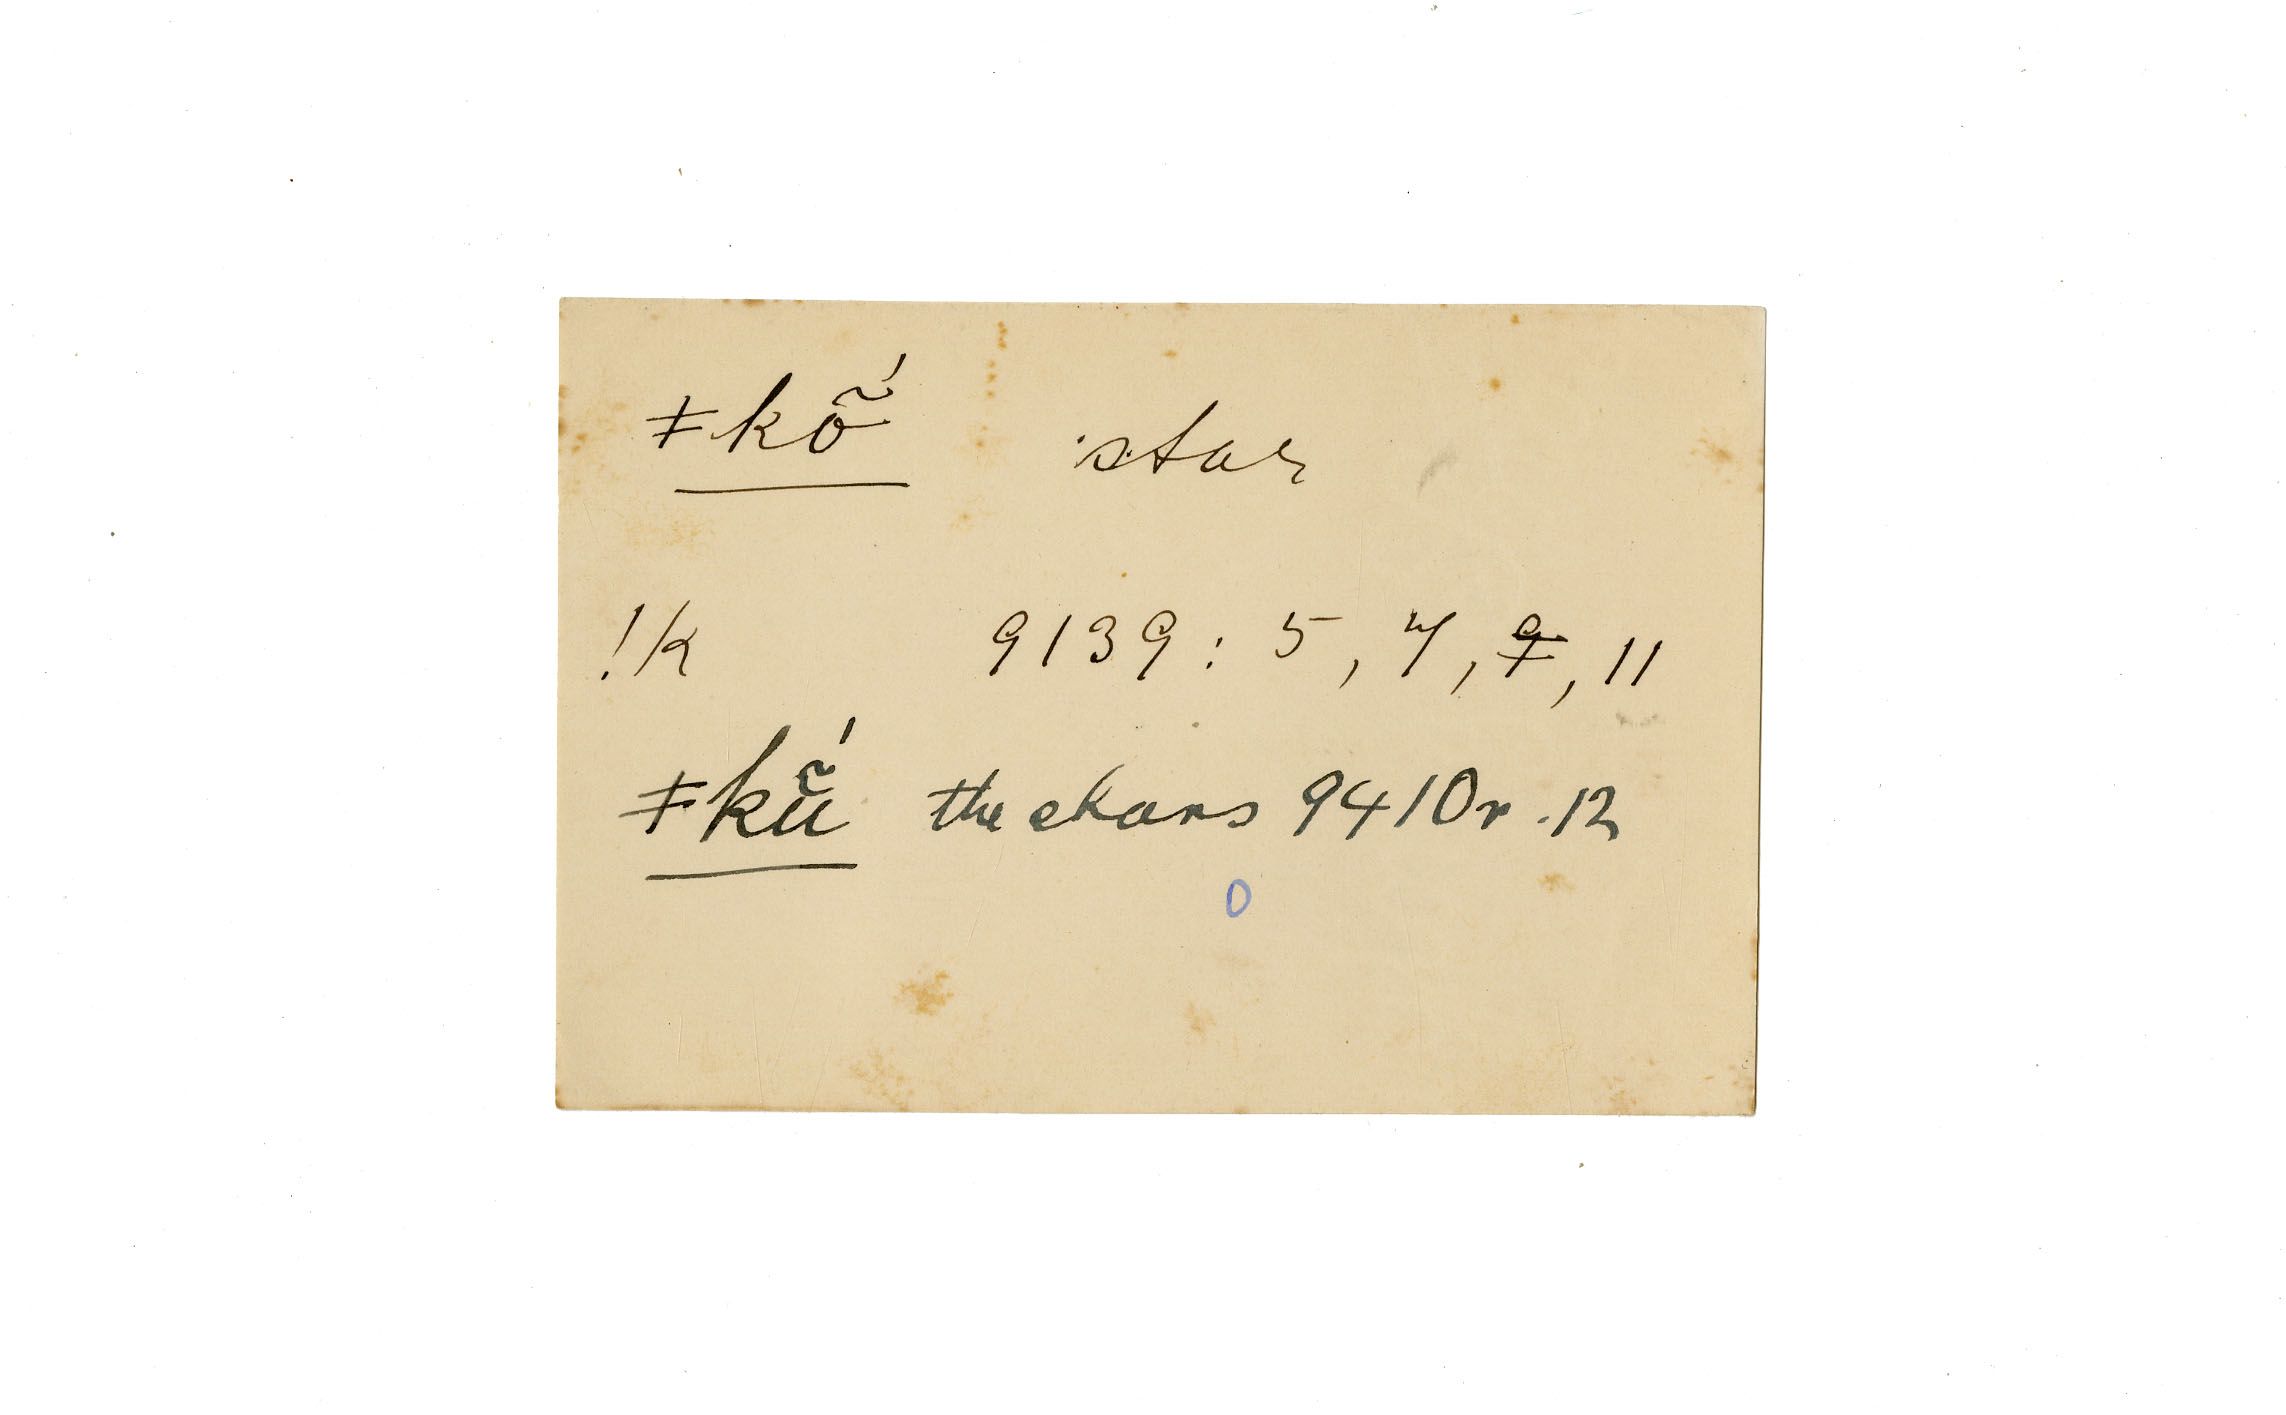 ǂkṍ star
!k 9139 : 5, 7, 9, 11
ǂkṹ the stars 9410r.12
0